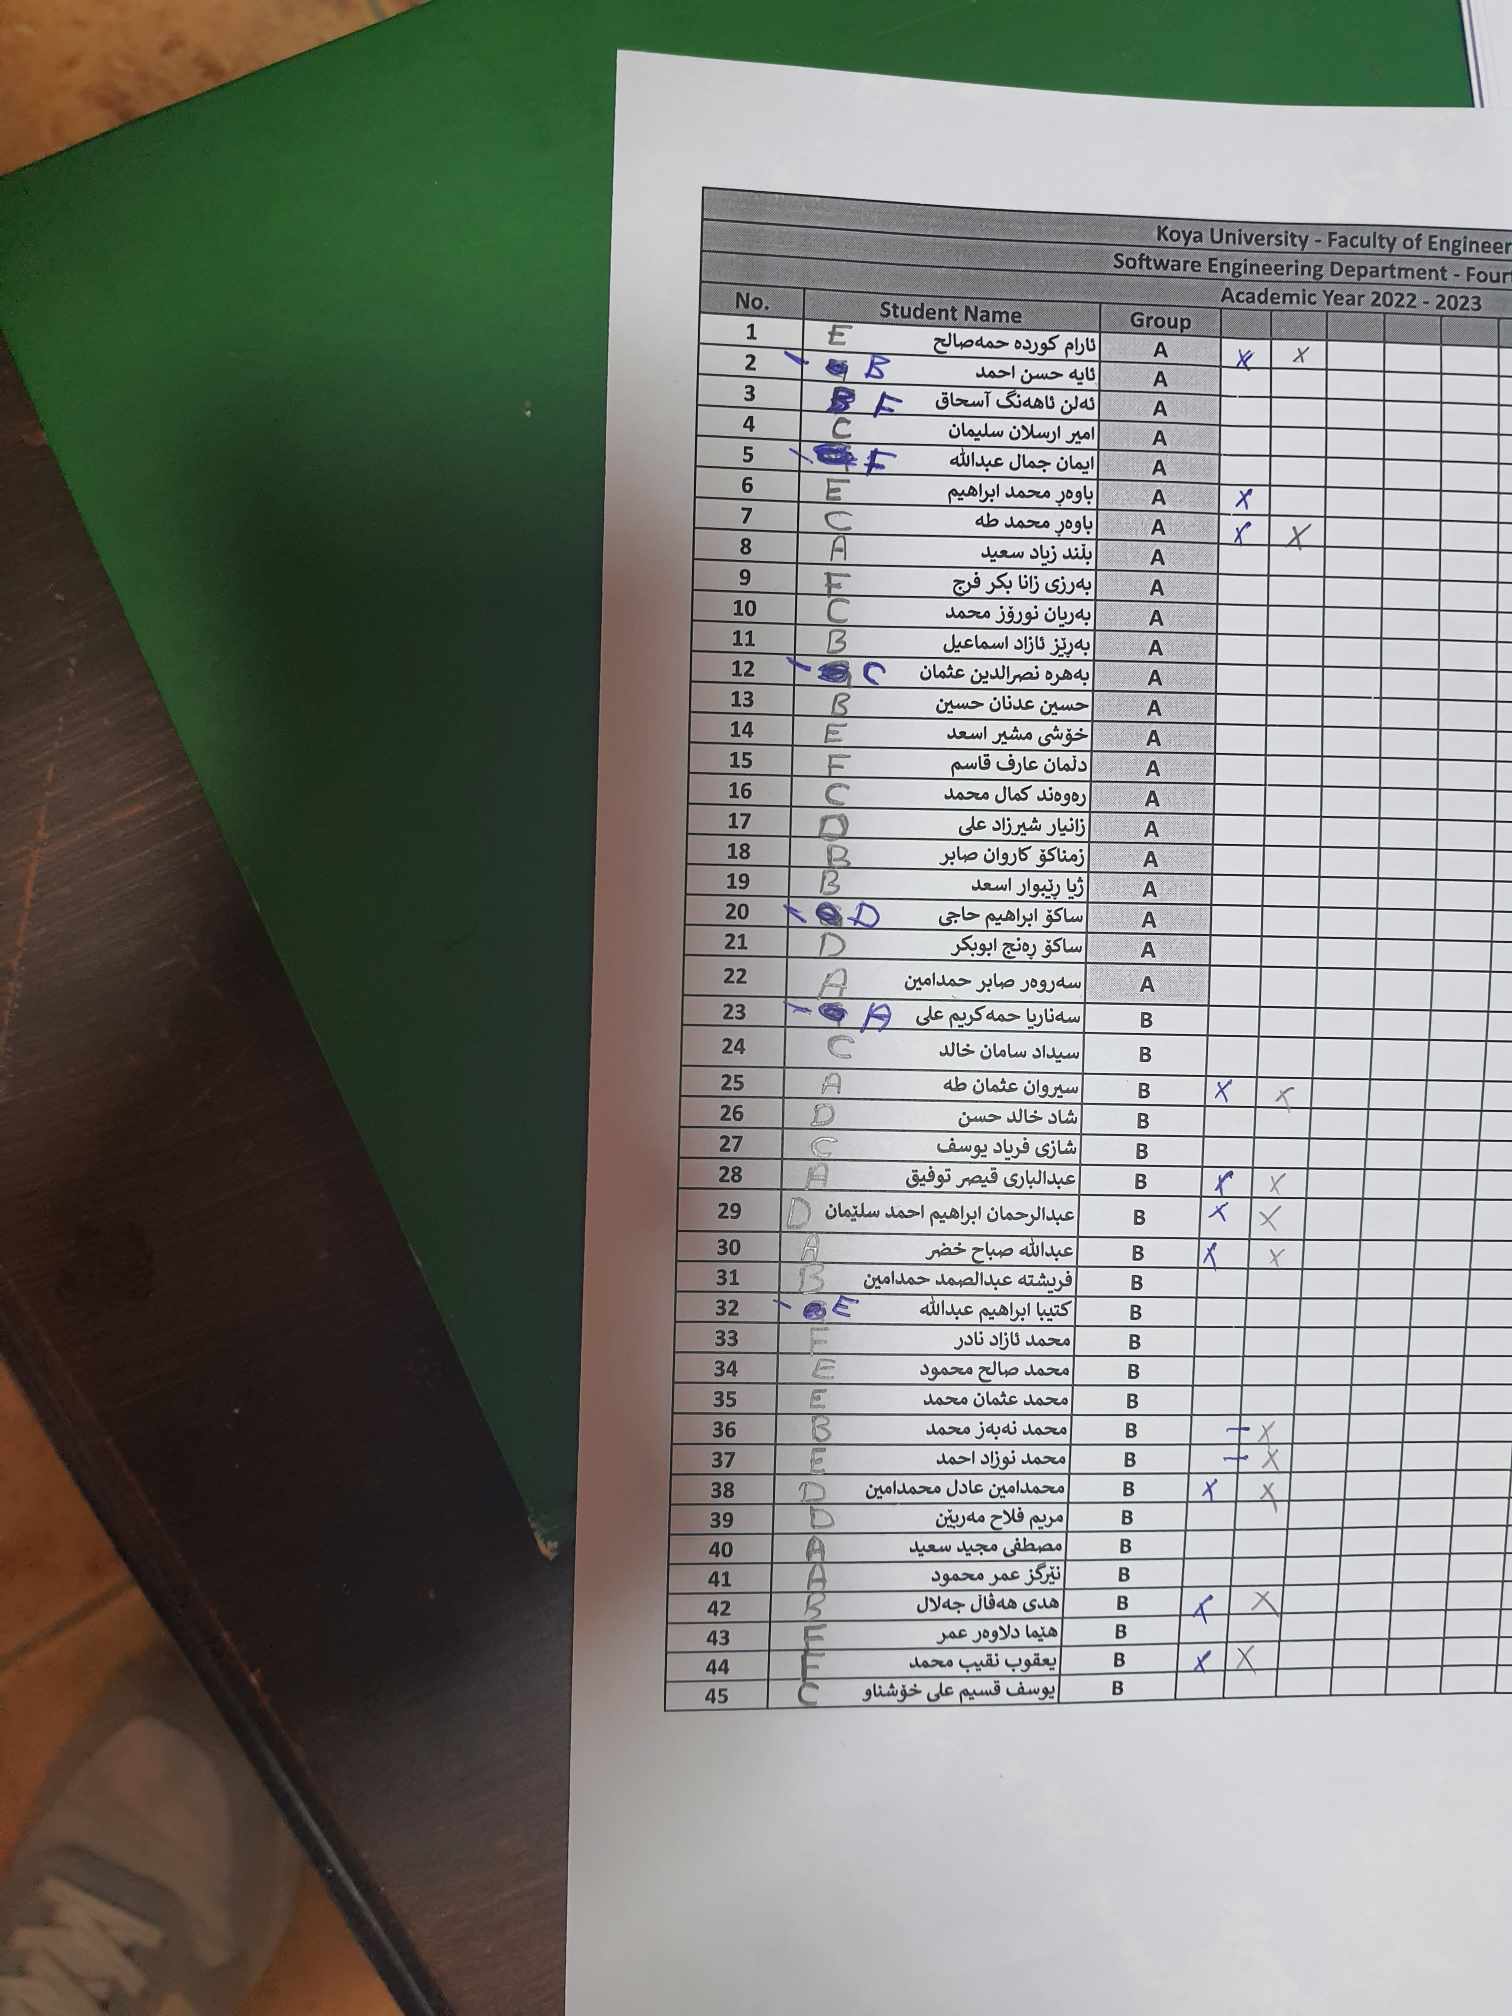 Koya University - Faculty of Engineer
Software Engineering Department - Four
Academic Year 2022 - 2023
No. Student Name Group
1 E ئارام كورده حمەصالح A X X
2 B ئایه حسن احمد A
3 B F ئەلن ئاهەنگ آسحاق A
4 C امیر ارسلان سلیمان A
5 F ایمان جمال عبدالله A
6 E باوەڕ محمد ابراهیم A X
7 C باوەڕ محمد طه A X X
8 A بڵند زیاد سعید A
9 F بەرزی زانا بکر فرج A
10 C بەریان نورۆز محمد A
11 B بەڕێز ئازاد اسماعیل A
12 C بەهره نصرالدین عثمان A
13 B حسین عدنان حسین A
14 E خۆشی مشیر اسعد A
15 F دڵمان عارف قاسم A
16 C رەوەند کمال محمد A
17 D زانیار شیرزاد علی A
18 B زمناکۆ کاروان صابر A
19 B ژیا ڕێبوار اسعد A
20 D ساکۆ ابراهیم حاجی A
21 D ساکۆ ڕەنج ابوبکر A
22 A سەروەر صابر حمدامین A
23 A سەناریا حمەکریم علی B
24 C سیداد سامان خالد B
25 A سیروان عثمان طه B X X
26 D شاد خالد حسن B
27 C شازی فریاد یوسف B
28 A عبدالباری قیصر توفیق B X X
29 D عبدالرحمان ابراهیم احمد سلێمان B X X
30 A عبدالله صباح خضر B X X
31 B فریشته عبدالصمد حمدامین B
32 E کتیبا ابراهیم عبدالله B
33 F محمد ئازاد نادر B
34 E محمد صالح محمود B
35 E محمد عثمان محمد B
36 B محمد نەبەز محمد B – X
37 E محمد نوزاد احمد B – X
38 D محمدامین عادل محمدامین B X X
39 D مریم فلاح مەربێن B
40 A مصطفی مجید سعید B
41 A نێرگز عمر محمود B
42 B هدی هەڤاڵ جەلال B X X
43 F هێما دلاوەر عمر B
44 F یعقوب نقیب محمد B X X
45 C یوسف قسیم علی خۆشناو B